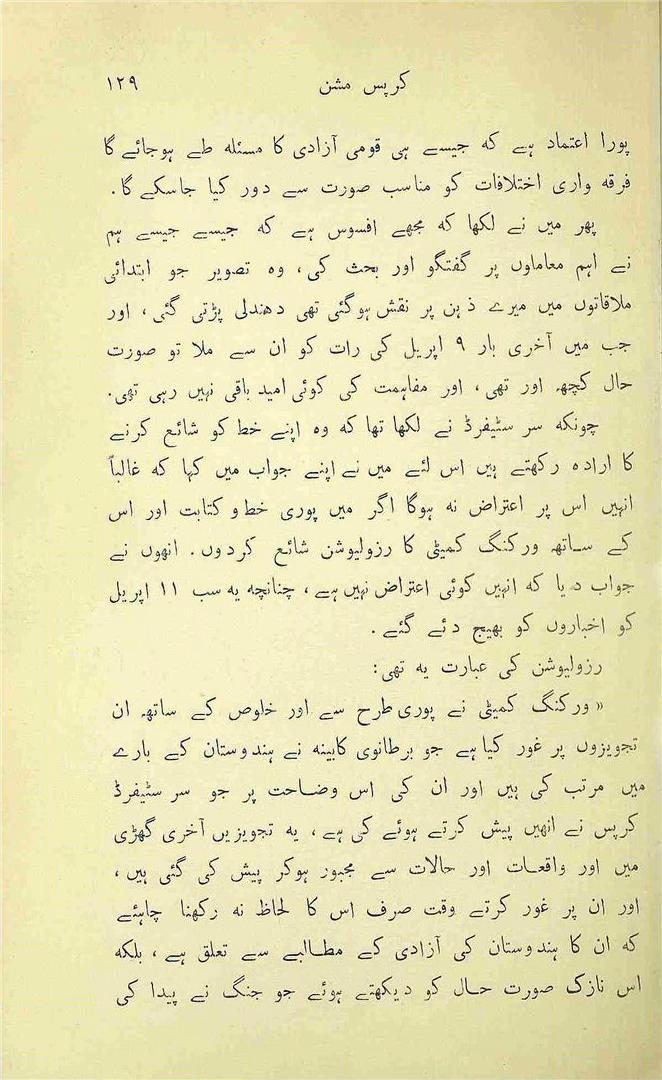 کرپس مشن ۱۲۹
پورا اعتماد ہے کہ جیسے ہی قومی آزادی کا مسئلہ طے ہوجائے گا
فرقہ واری اختلافات کو مناسب صورت سے دور کیا جاسکے گا۔
پھر میں نے لکھا کہ مجھے افسوس ہے کہ جیسے جیسے ہم
نے اہم معاملوں پر گفتگو اور بحث کی، وہ تصویر جو ابتدائی
ملاقاتوں میں میرے ذہن پر نقش ہوگئی تھی دھندلی پڑتی گئی، اور
جب میں آخری بار ۹ اپریل کی رات کو ان سے ملا تو صورت
حال کچھ اور تھی، اور مفاہمت کی کوئی امید باقی نہیں رہی تھی۔
چونکہ سر سٹیفرڈ نے لکھا تھا کہ وہ اپنے خط کو شائع کرنے
کا ارادہ رکھتے ہیں اس لئے میں نے اپنے جواب میں کہا کہ غالباً
انہیں اس پر اعتراض نہ ہوگا اگر میں پوری خط و کتابت اور اس
کے ساتھ ورکنگ کمیٹی کا رزولیوشن شائع کردوں۔ انھوں نے
جواب دیا کہ انہیں کوئی اعتراض نہیں ہے، چنانچہ یہ سب ۱۱ اپریل
کو اخباروں کو بھیج دئے گئے۔
رزولیوشن کی عبارت یہ تھی:
« ورکنگ کمیٹی نے پوری طرح سے اور خلوص کے ساتھ ان
تجویزوں پر غور کیا ہے جو برطانوی کابینہ نے ہندوستان کے بارے
میں مرتب کی ہیں اور ان کی اس وضاحت پر جو سر سٹیفرڈ
کرپس نے انھیں پیش کرتے ہوئے کی ہے، یہ تجویزیں آخری گھڑی
میں اور واقعات اور حالات سے مجبور ہوکر پیش کی گئی ہیں،
اور ان پر غور کرتے وقت صرف اس کا لحاظ نہ رکھنا چاہئے
کہ ان کا ہندوستان کی آزادی کے مطالبے سے تعلق ہے، بلکہ
اس نازک صورت حال کو دیکھتے ہوئے جو جنگ نے پیدا کی